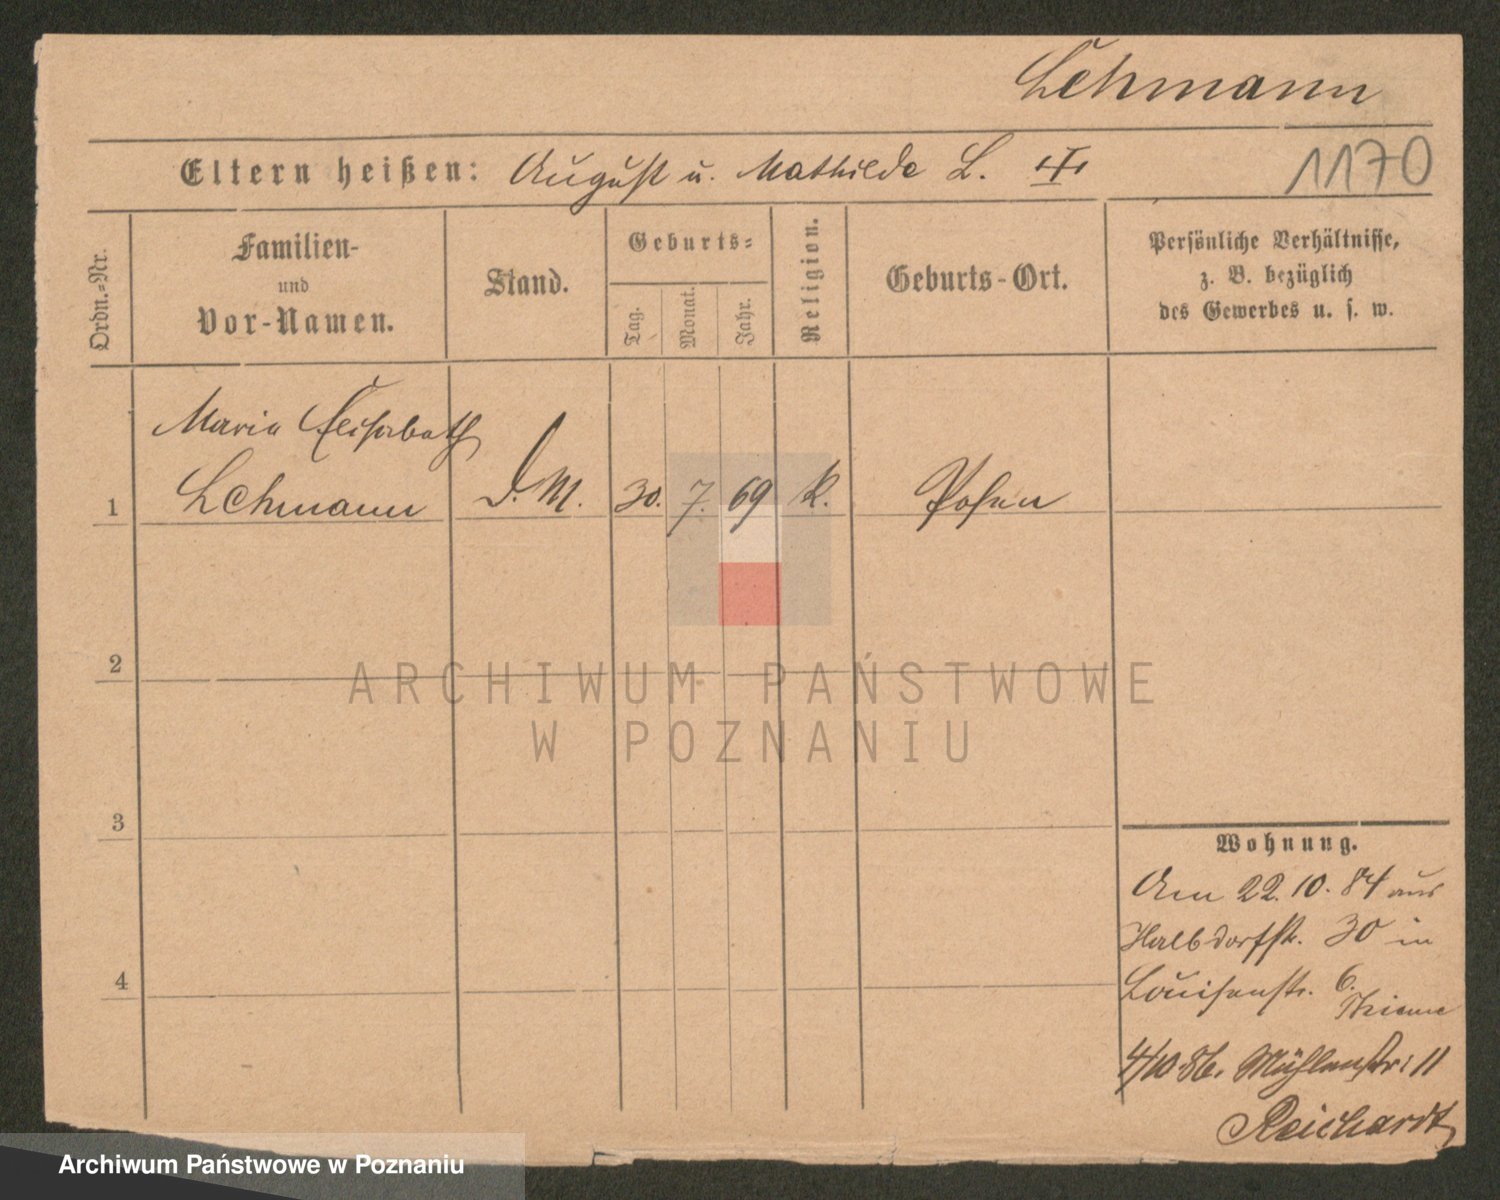 Lehmann
1170
Eltern heißen: August u. Mathilde L.
Ordn.-Nr.
Familien-
und
Vor-Namen.
Stand.
Geburts-
Tag.
Monat.
Jahr.
Religion.
Geburts-Ort.
Persönliche Verhältnisse,
z. B. bezüglich
des Gewerbes u. s. w.
Maria Elisabeth
1 Lehmann D. M. 30. 7. 69 k. Posen
2
ARCHIWUM PAŃSTWOWE
W POZNANIU
3
Wohnung.
Am 22. 10. 84 aus
Halbdorfstr. 30 in
4
Louisenstr. 6.
4/10.86. Mühlenstr: 11
Reichardt
Archiwum Państwowe w Poznaniu